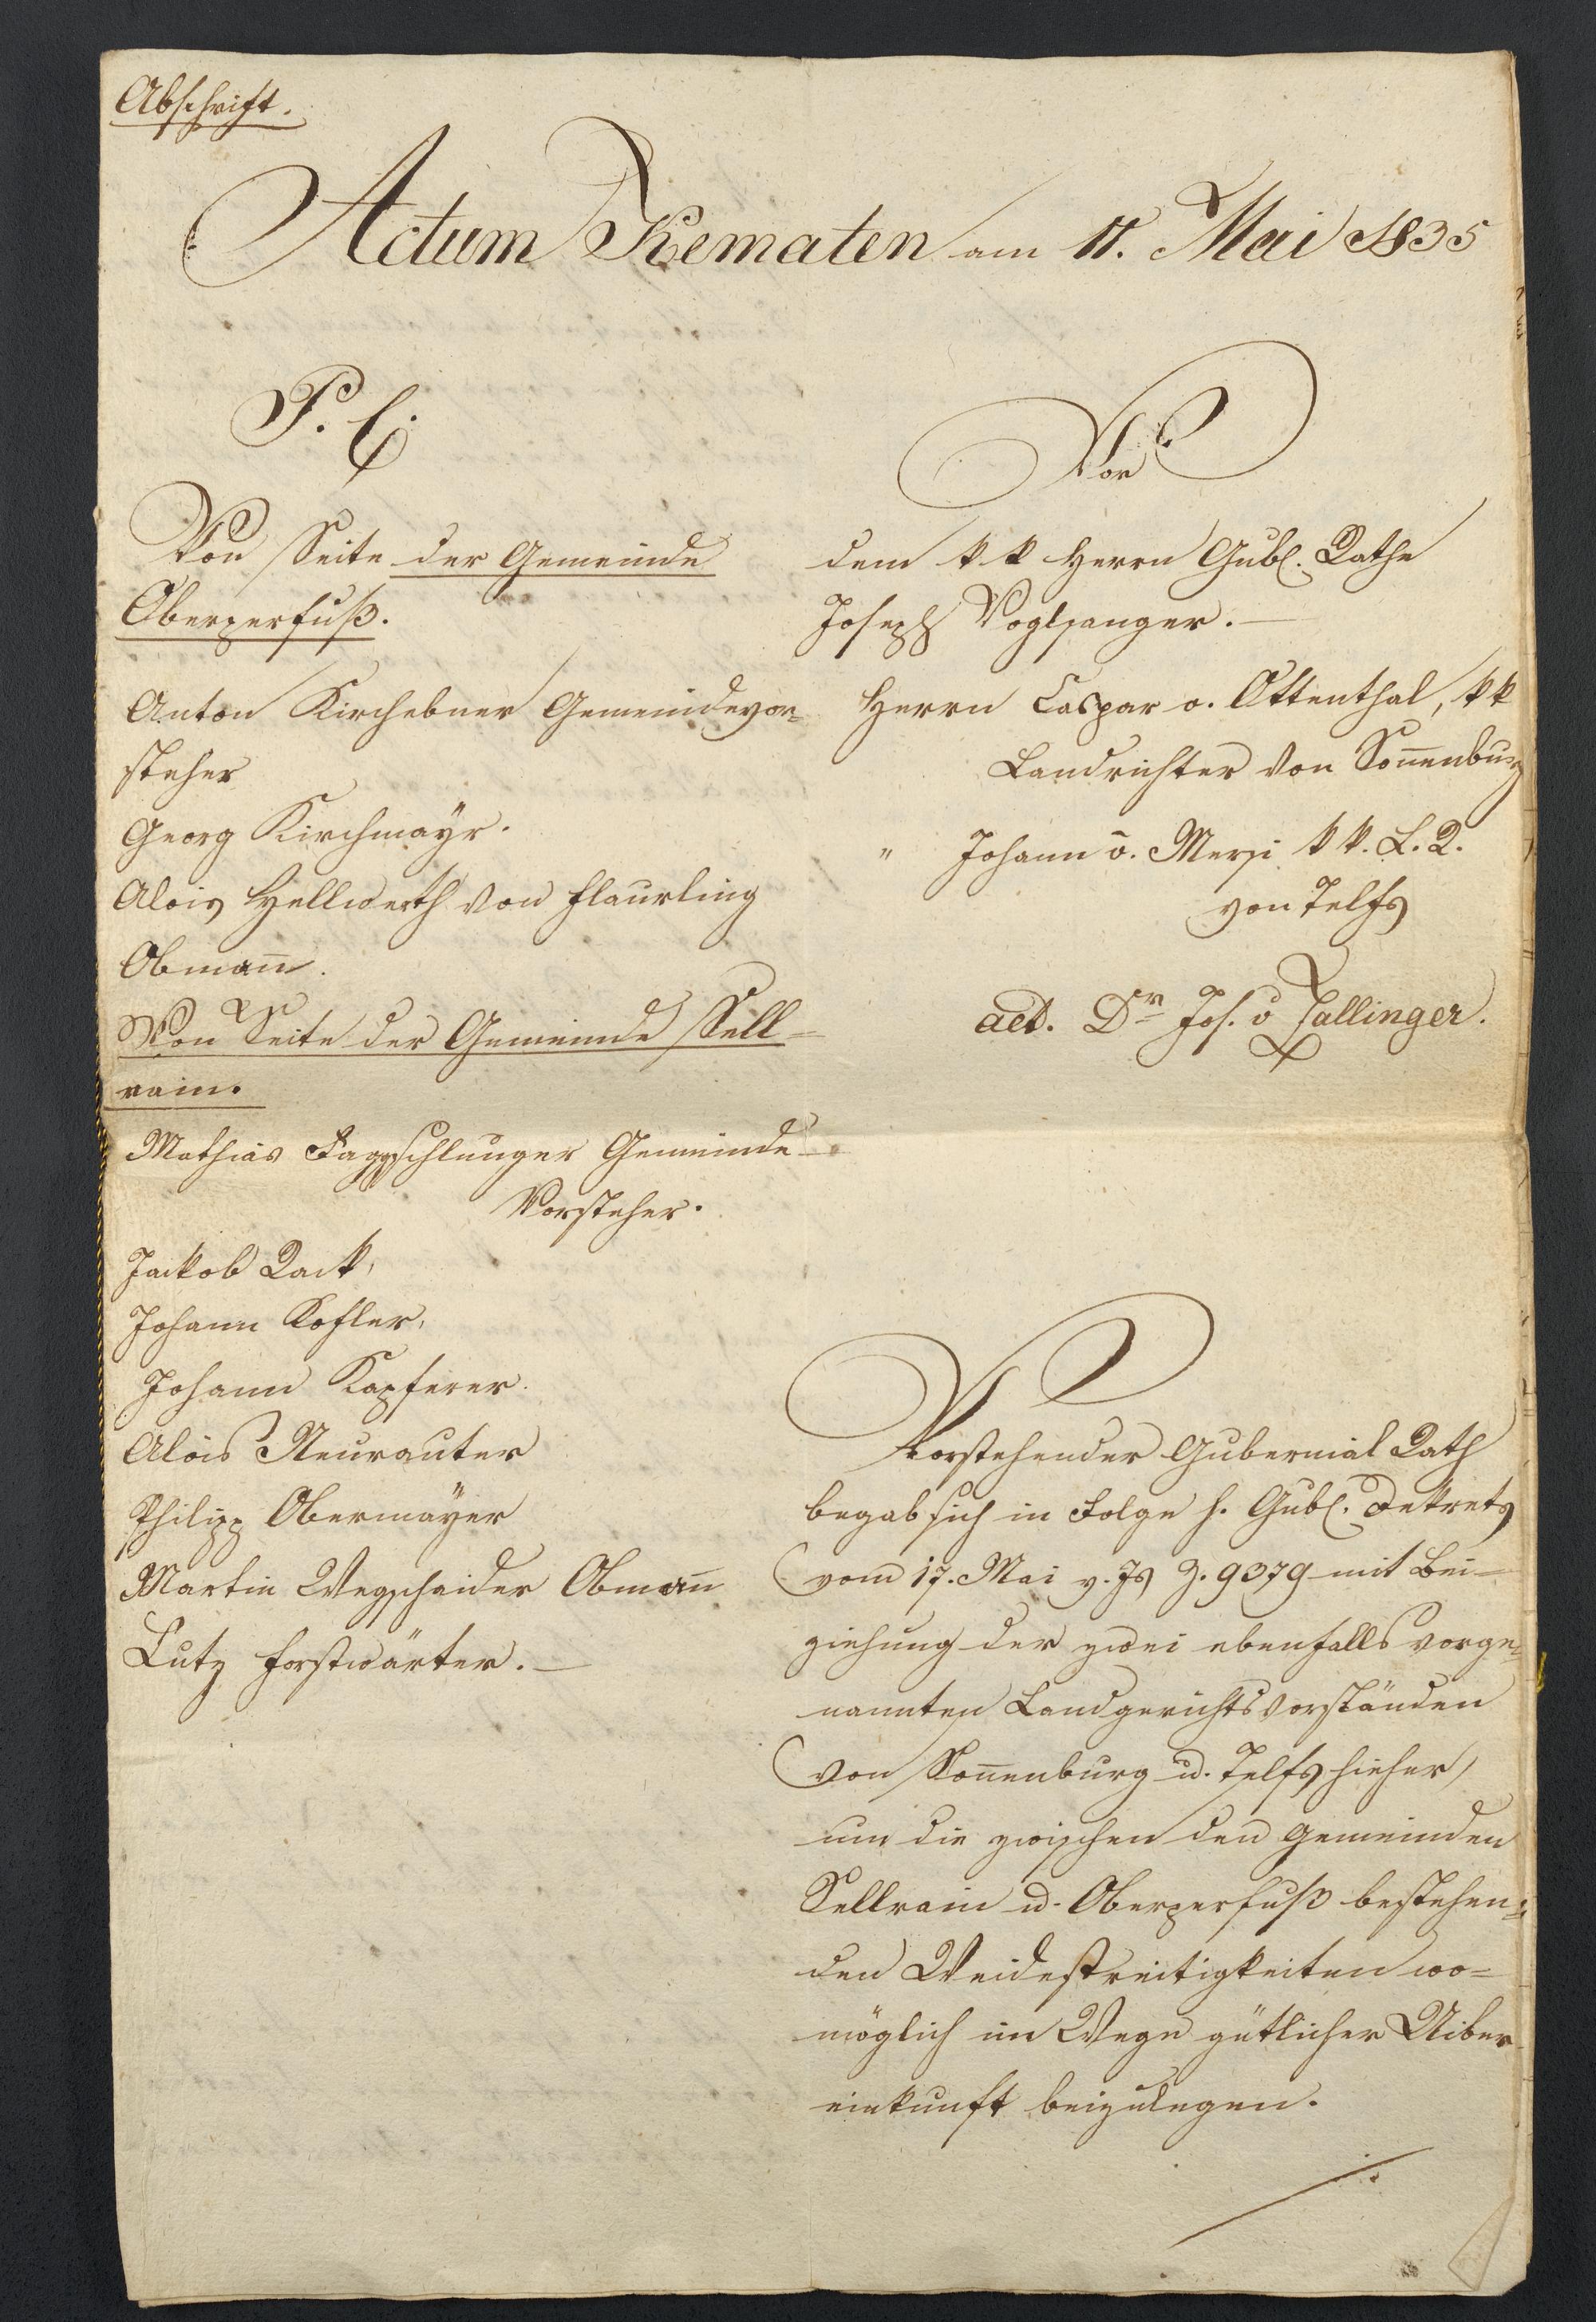 Abschrift.
Actum Kematen am 11. Mai 1835
P. C.
Von Seite der Gemeinde
Oberperfuß.
Anton Kirchebner Gemeindevor=
steher
Georg Kirchmayr.
Alois Hellwerth von Flaurling
Obmann.
Von Seite der Gemeinde Sell=
rain.
Mathias Faggschlunger Gemeinde
Vorsteher.
Jackob Rack,
Johann Kofler,
Johann Kapferer.
Alois Neurauter
Philipp Obermayer
Martin Wegscheider Obmann
Lutz Forstwärter.—
Vor
dem k k Herrn Gubl. Rathe
Joseph Voglsanger.—
Herrn Caspar v. Ottenthal, k k
Landrichter von Sonnenburg
" Johann v. Mersi k k. L. R.
von Telfs
act. Dr Jos. v Zallinger.
Vorstehender Gubernial Rath
begab sich in Folge h. Gubl. Dekrets
vom 17. Mai v. Js Z. 9379 mit Bei=
ziehung der zwei ebenfalls vorge=
nannten Landgerichtsvorständen
von Sonnenburg u. Telfs hieher,
um die zwischen den Gemeinden
Sellrain u. Oberperfuß bestehen=
den Weidestreitigkeiten wo=
möglich im Wege gütlicher Uiber
einkunft beizulegen.